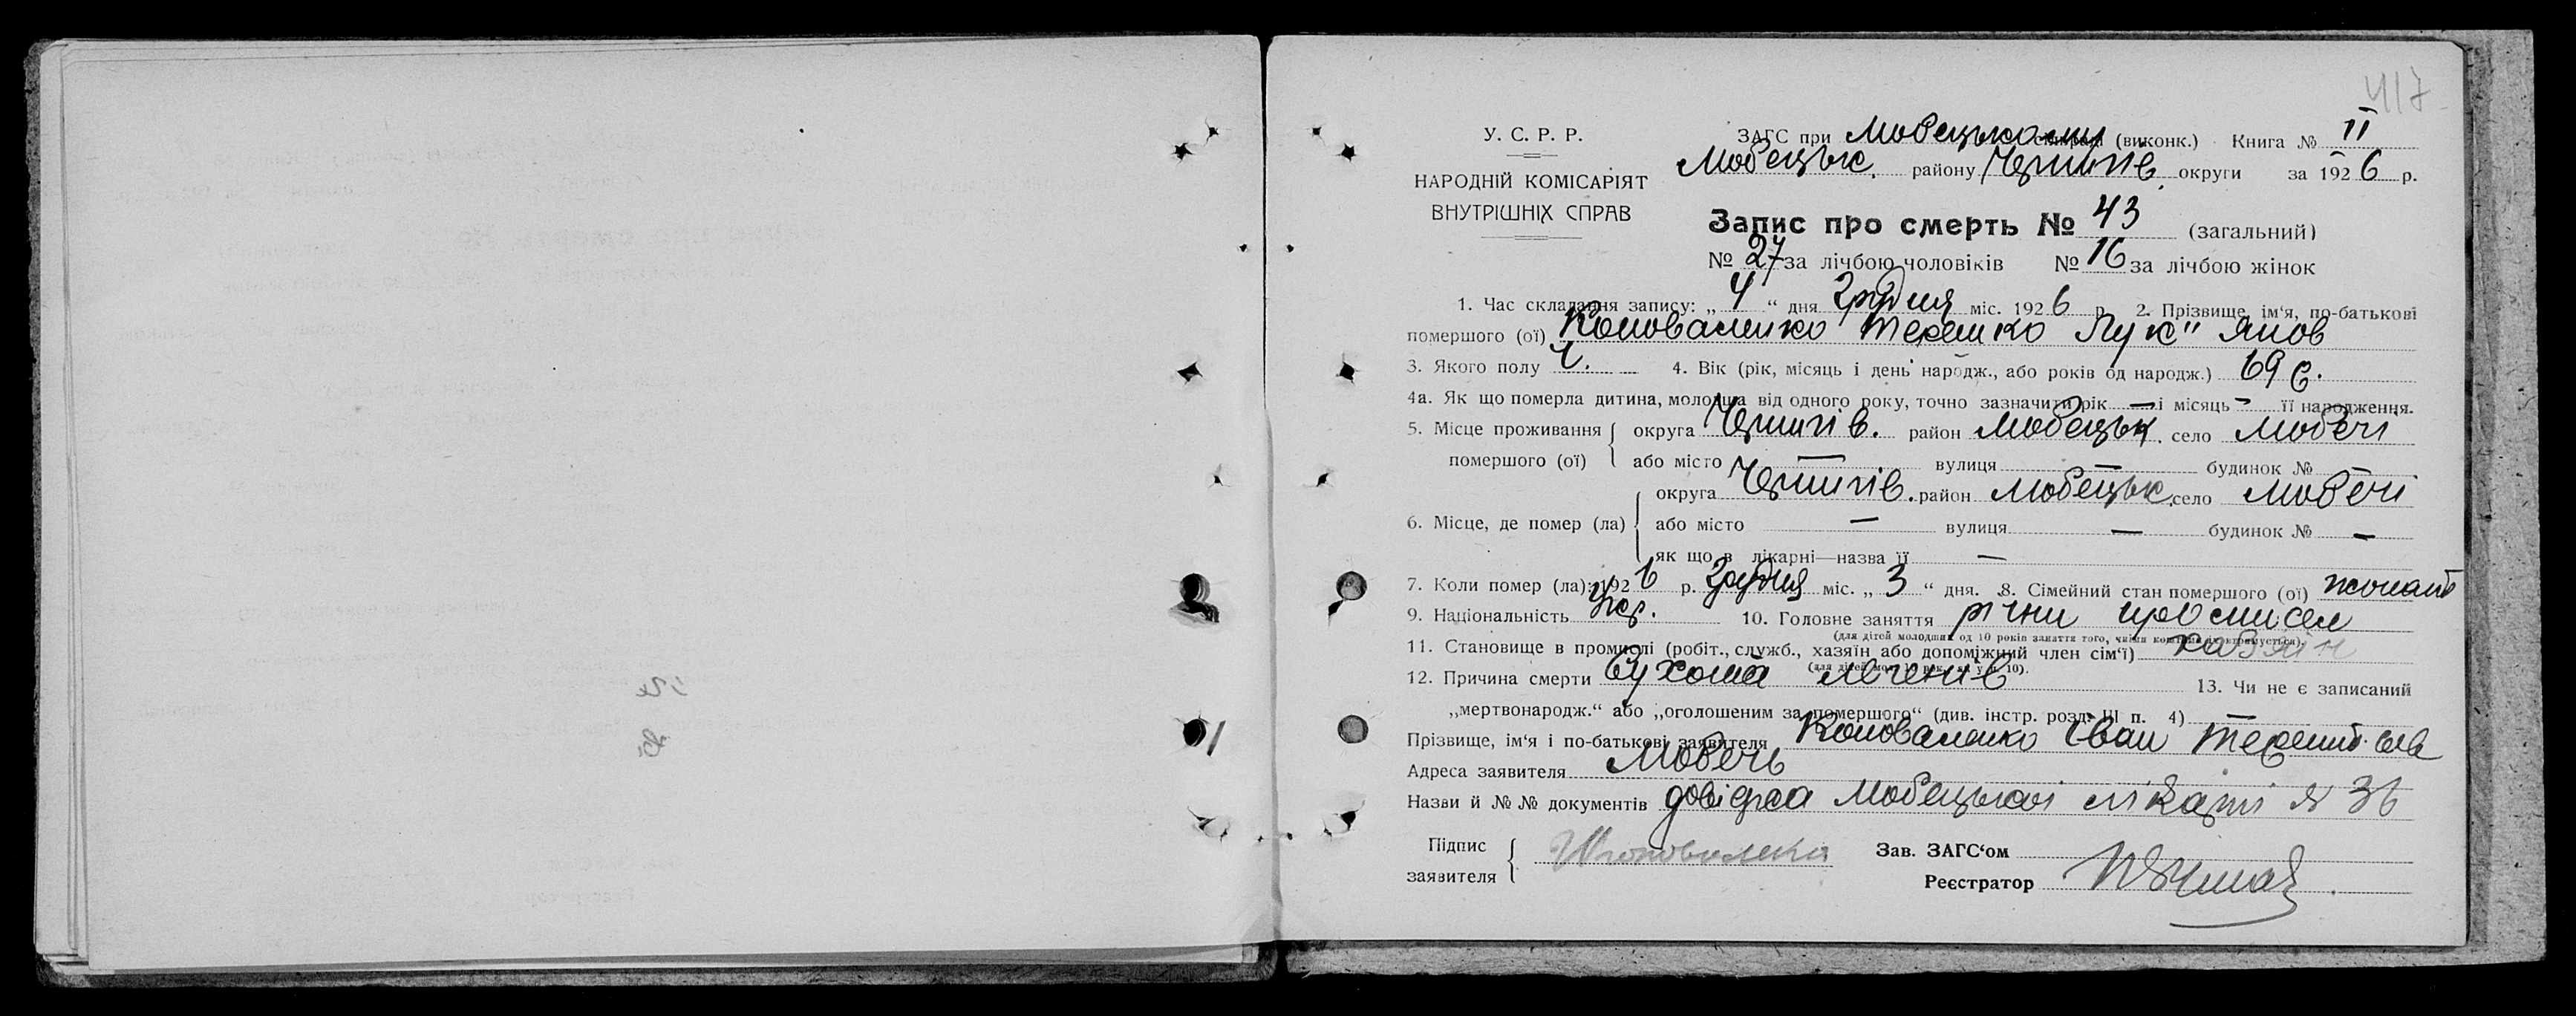 417
У. С. Р. Р.
НАРОДНІЙ КОМІСАРІЯТ
ВНУТРІШНІХ СПРАВ
ЗАГС при Любецьком (виконк.) Книга № II
Любецьк. району Черниґів. округи за 1926 р.
Запис про смерть № 43 (загальний)
№ 27 за лічбою чоловіків № 16 за лічбою жінок
1. Час складання запису: „4“ дня Грудня міс. 1926 р. 2. Прізвище, ім‘я, по-батькові
помершого (ої) Коноваленко Терешко Лук"янов
3. Якого полу Ч. 4. Вік (рік, місяць і день народж., або років од народж.) 69 р.
4а. Як що померла дитина, молодша від одного року, точно зазначити рік — і місяць — її народження.
5. Місце проживання помершого (ої) округа Черниґів. район Любецьк. село Любечі
або місто — вулиця — будинок № —
6. Місце, де помер (ла) округа Черниґів. район Любецьк. село Любечі
або місто — вулиця — будинок № —
як що в лікарні—назва її —
7. Коли помер (ла): 1926 р. Грудня міс. „3“ дня. 8. Сімейний стан помершого (ої) жонат
9. Національність Укр. 10. Головне заняття річни промисел
(для дітей молодших од 10 років заняття того, чиїми коштами
11. Становище в промислі (робіт., служб., хазяїн або допоміжний член сім‘ї) хазяїн
12. Причина смерти Сухота легенів 13. Чи не є записаний
„мертвонародж.“ або „оголошеним за помершого“ (див. інстр. розд. III п. 4) —
Прізвище, ім‘я і по-батькові заявителя Коноваленко Іван
Адреса заявителя Любечь
Назви й №№ документів довідка Любецької лікарні № 36
Підпис заявителя Коноваленко Зав. ЗАГС‘ом
Реєстратор